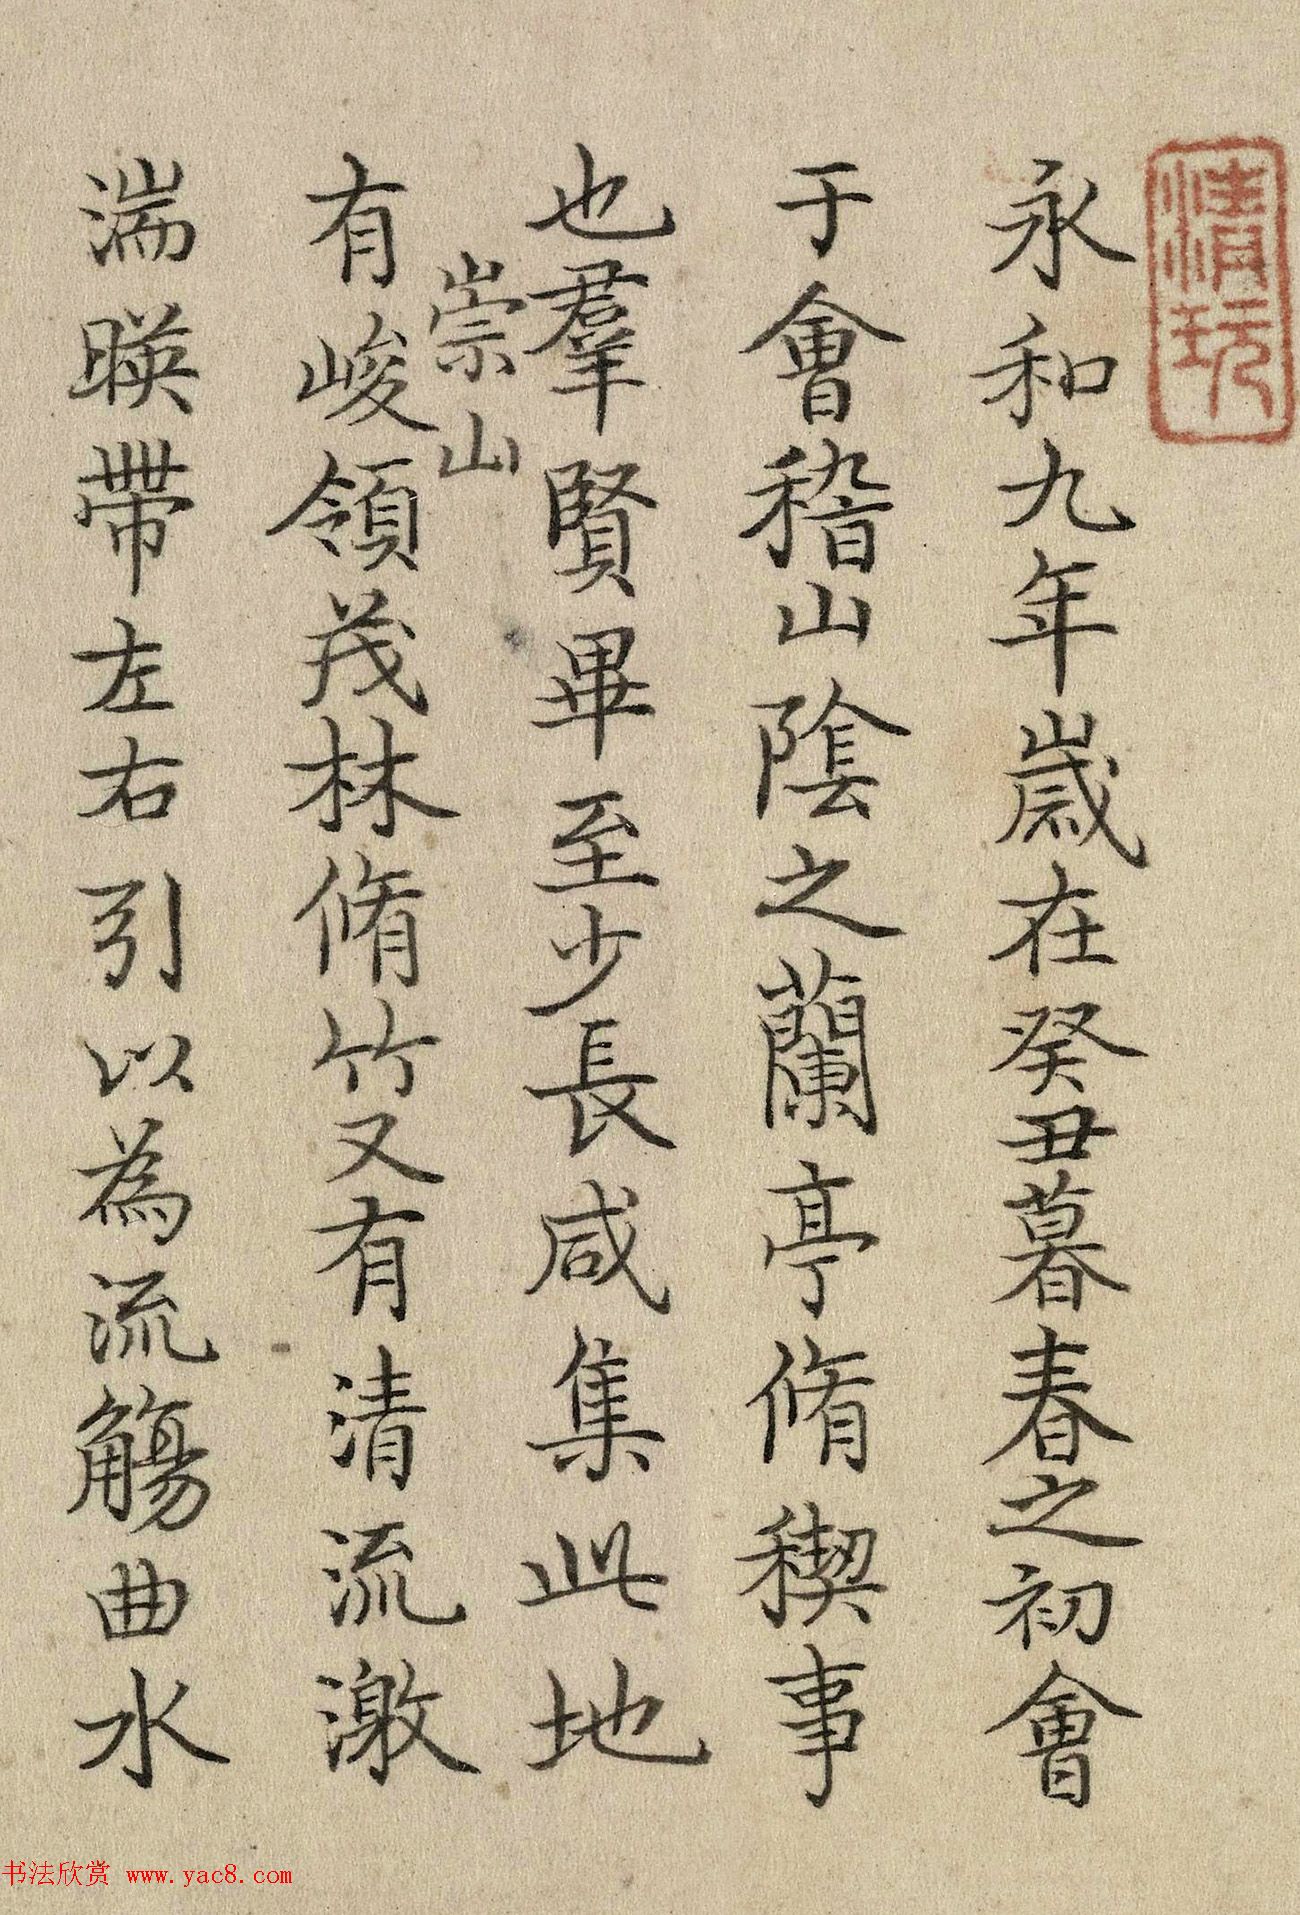 清玩
永和九年歲在癸丑暮春之初會
于會稽山陰之蘭亭脩稧事
也羣賢畢至少長咸集此地
崇山
有峻領茂林脩竹又有清流激
湍暎帶左右引以為流觴曲水
书法欣赏 www.yac8.com